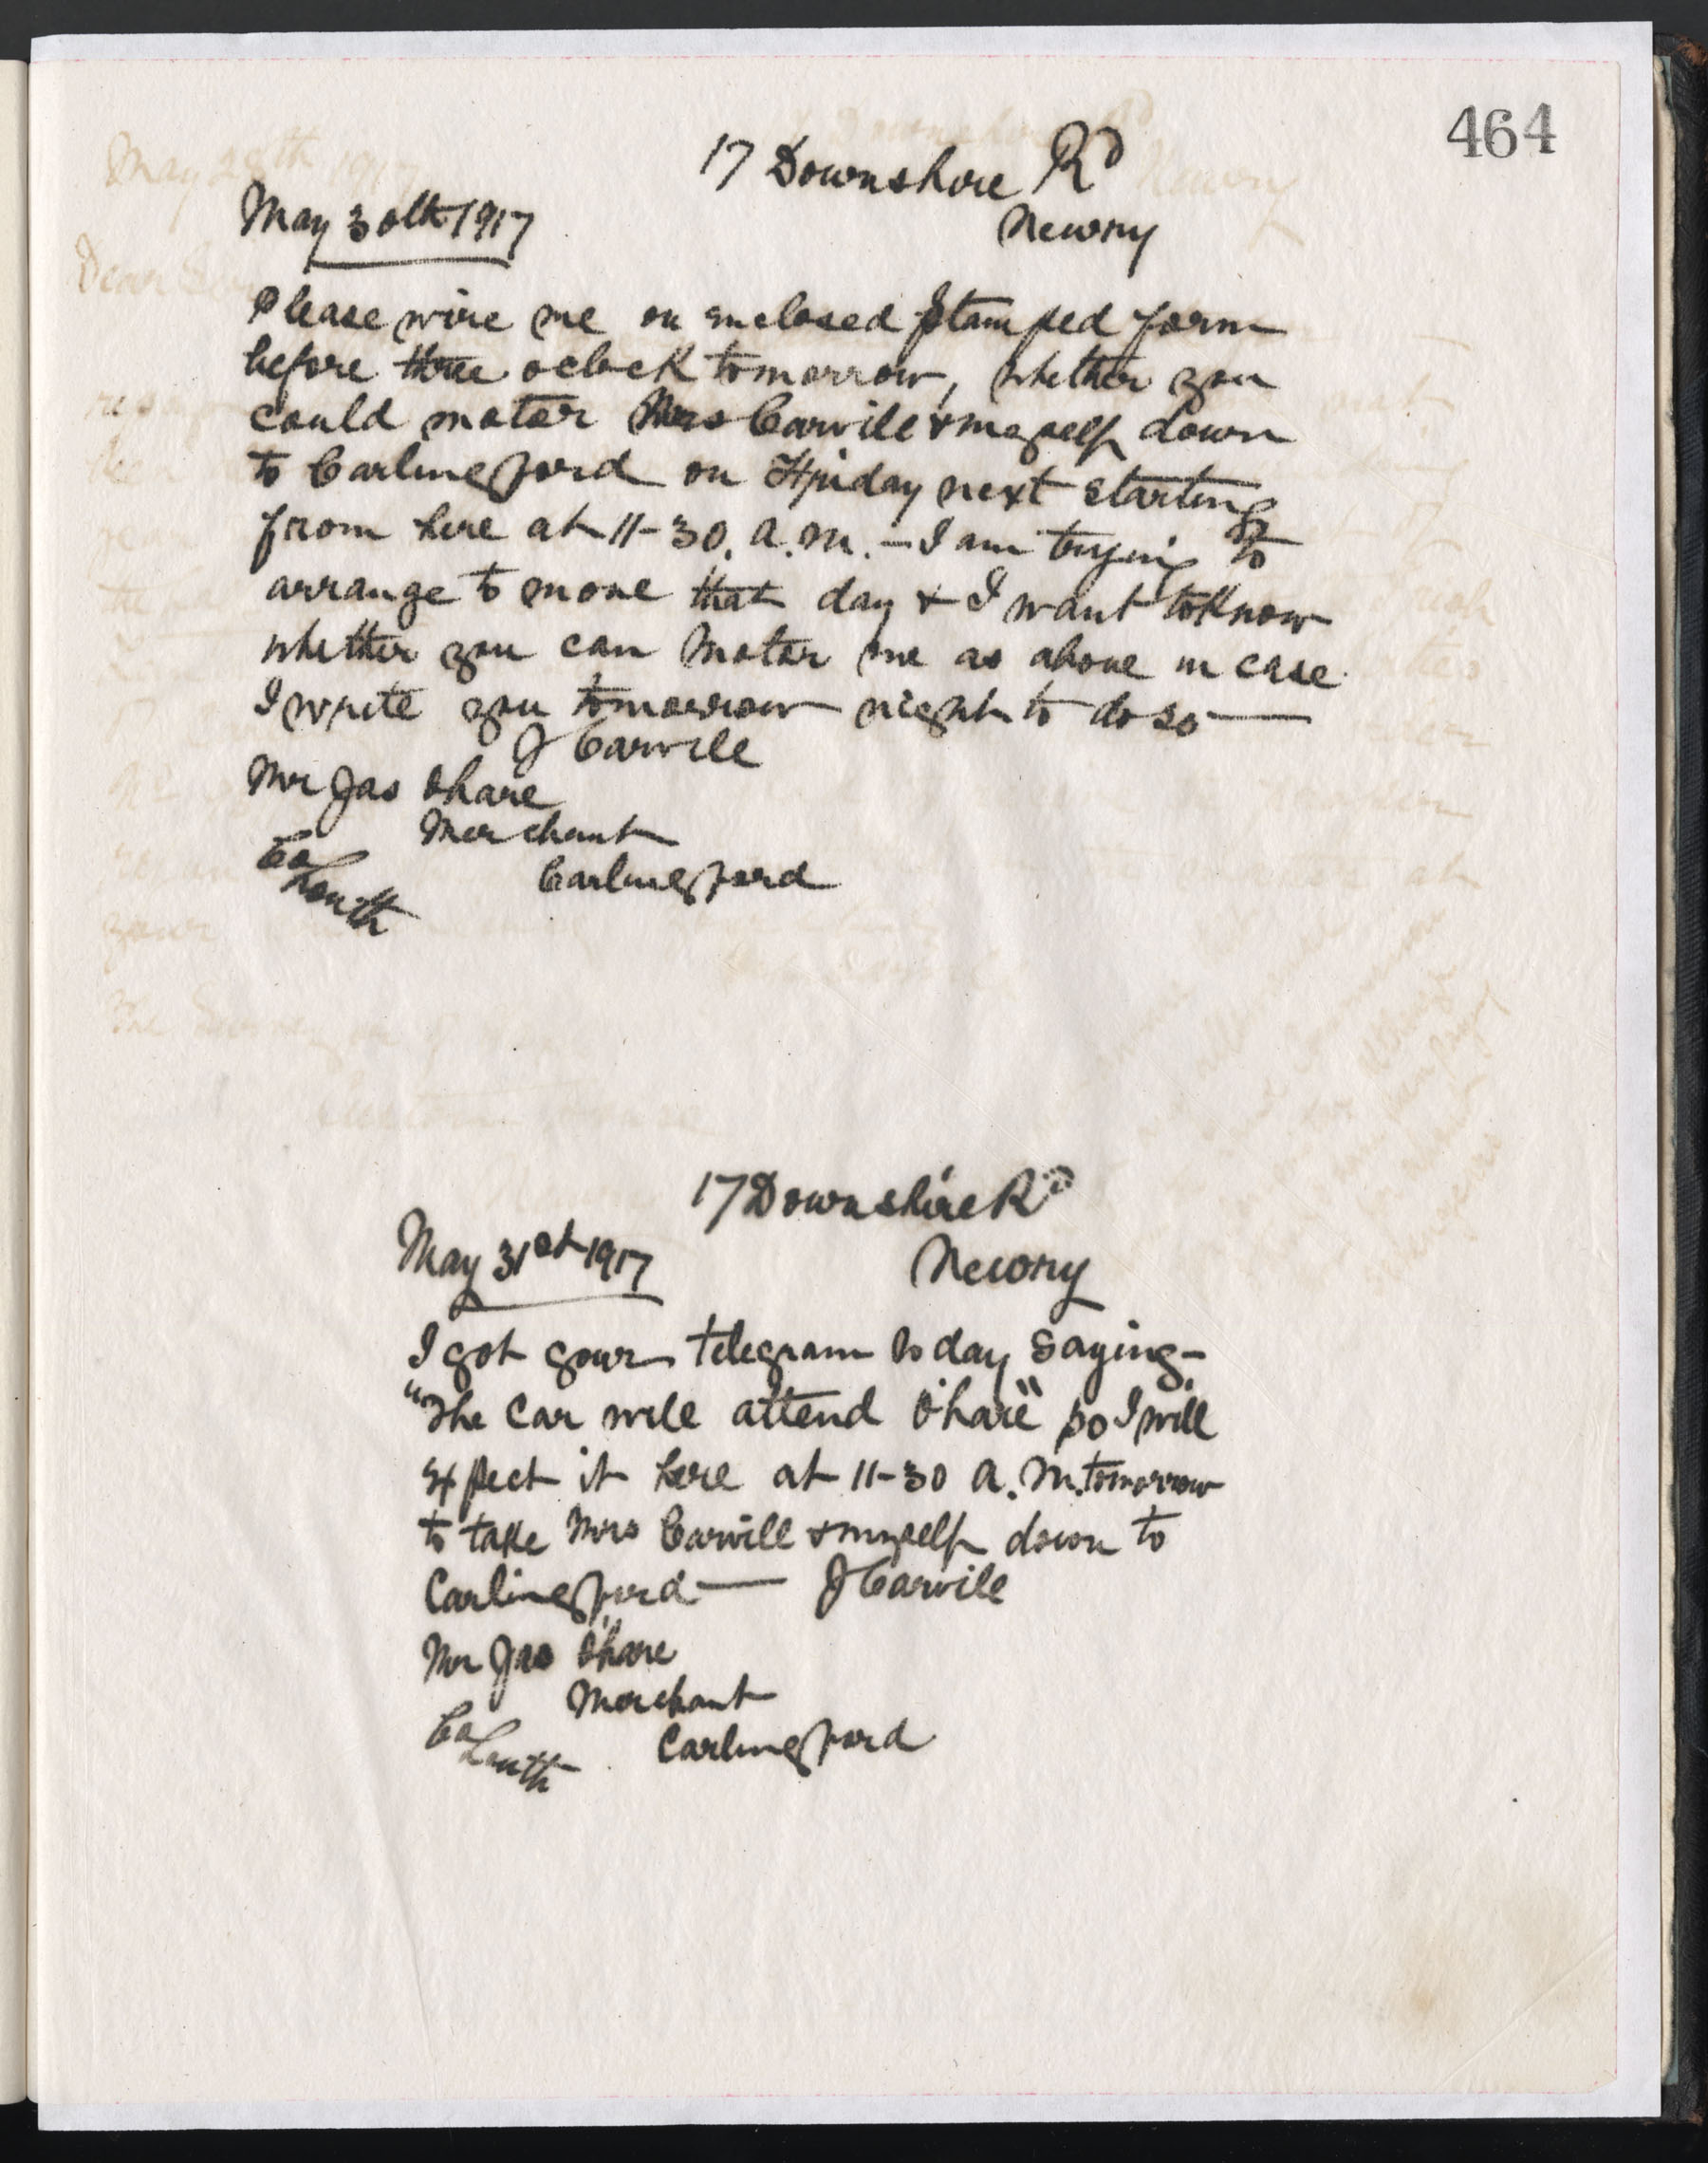 464
17 Downshire Rd
May 30th 1917
Newry
Please wire me on enclosed stamped form
before three oclock tomorrow, whether you
could motor Mrs Carvill & myself down
to Carlingford on Friday next starting
from here at 11-30. a.m. - I am trying to
arrange to move that day & I want to know
whether you can motor me as above in case
I write you tomorrow night to do so —
J Carvill
Mr Jas Ohare
Merchant
Carlingford
Co Louth
17 Downshire Rd
May 31st 1917
Newry
I got your telegram today saying -
"The car will attend O'hare" so I will
expect it here at 11-30 a.m. tomorrow
to take Mrs Carvill & myself down to
Carlingford — J Carvill
Mr Jas O'hare
Merchant
Co Louth
Carlingford